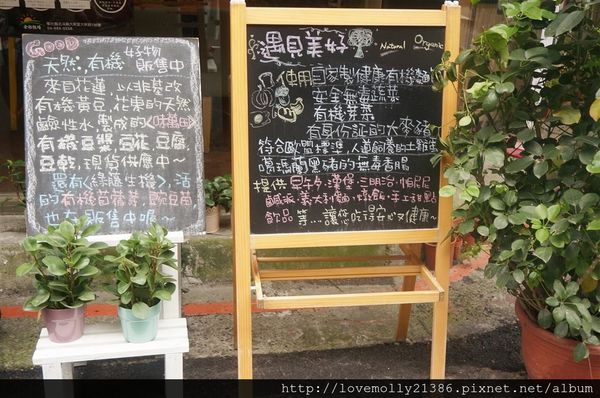 Good
好物
天然,有機 販售中
來自花蓮,以非基改
有機黃豆,花東的天然
鹼性水,製成的<味萬田>
有機豆漿、豆花、豆腐、
豆乾,現貨供應中~
還有<綠藤生機>,活
的有機苜蓿芽、豌豆苗
也有販售中喔~
遇見美好
Natural Organic
使用自家製健康有機麵
安全無毒蔬菜
有機芽菜
有身份証的大麥豬
符合歐盟標準,人道飼養的土雞
噶瑪蘭黑豬的無毒香腸
提供 早午夕、漢堡、三明治、帕尼尼
鹹派、義大利麵、燉飯、手工甜點
飲品 等...讓您吃得安心又健康~
http://lovemolly21386.pixnet.net/album